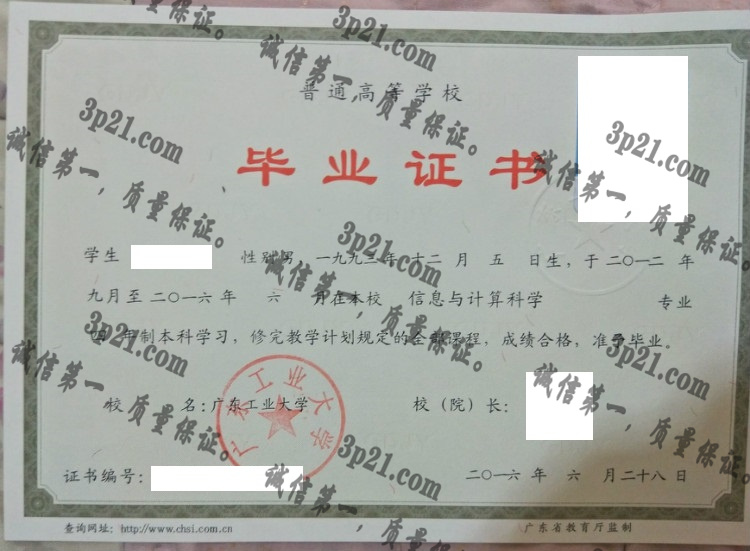 普通高等学校
毕业证书
学生 性别男 一九九三年十二月五日生，于二〇一二年
九月至二〇一六年 六月在本校 信息与计算科学 专业
四年制本科学习，修完教学计划规定的全部课程，成绩合格，准予毕业。
校 名：广东工业大学 校（院）长：
广东工业大学
证书编号： 二〇一六年 六月二十八日
查询网址：http://www.chsi.com.cn 广东省教育厅监制
3p21.com
诚信第一，质量保证。
3p21.com
诚信第一，质量保证。
3p21.com
诚信第一，质量保证。
3p21.com
诚信第一，质量保证。
3p21.com
诚信第一，质量保证。
3p21.com
诚信第一，质量保证。
3p21.com
诚信第一，质量保证。
3p21.com
诚信第一，质量保证。